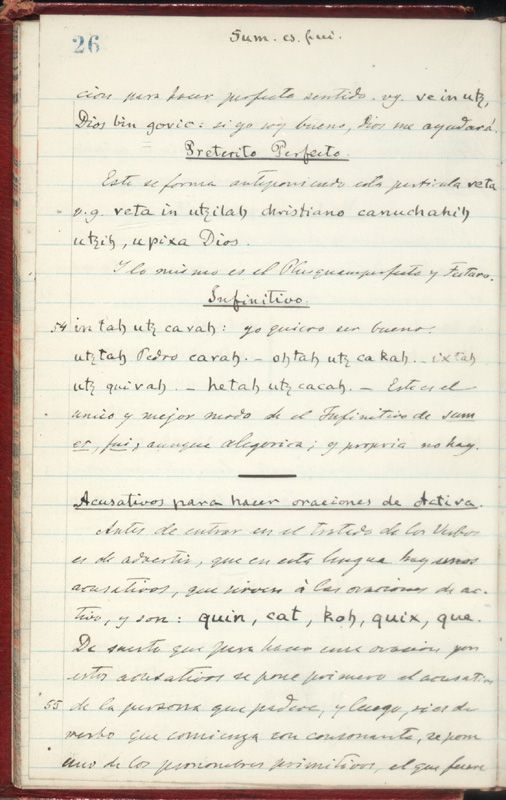 26
Sum. es. fui.
cion para hacer perfecto sentido. vg. ve in utz,
Dios bin govic: si yo soy bueno, Dios me ayudará.
Preterito Perfecto
Este se forma anteponiendo esta particula veta
v.g. veta in utzilah christiano canuchahih
utzih, u pixa Dios.
Y lo mismo es el Plusquamperfecto y Futuro.
Infinitivo.
54 in tah utz cavah: yo quiero ser bueno.
utztah Pedro cavah. - ohtah utz ca kah. - ixtah
utz quivah. - hetah utz cacah. - Este es el
unico y mejor modo de el Infinitivo de sum
es, fui; aunque alegorica; y propria no hay.
Acusativos para hacer oraciones de Activa.
Antes de entrar en el tratado de los Verbos
es de advertir, que en esta lengua hay unos
acusativos, que sirven à las oraciones de ac-
tivo, y son: quin, cat, koh, quix, que.
De suerte que para hacer una oracion por
estos acusativos se pone primero el acusativo
55 de la persona que padece, y luego, si es de
verbo que comienza con consonante, se pone
uno de los pronombres primitivos, el que fuere